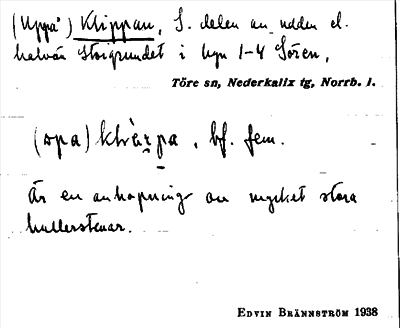 (Uppå) Klippan, S. delen av udden el.
halvön Storgrundet i byn 1-4 Sören,
Töre sn, Nederkalix tg, Norrb. l.
(opa) klväpa, bf. fem.
Är en anhopning av mycket stora
kullerstenar.
EDVIN BRÄNNSTRÖM 1938